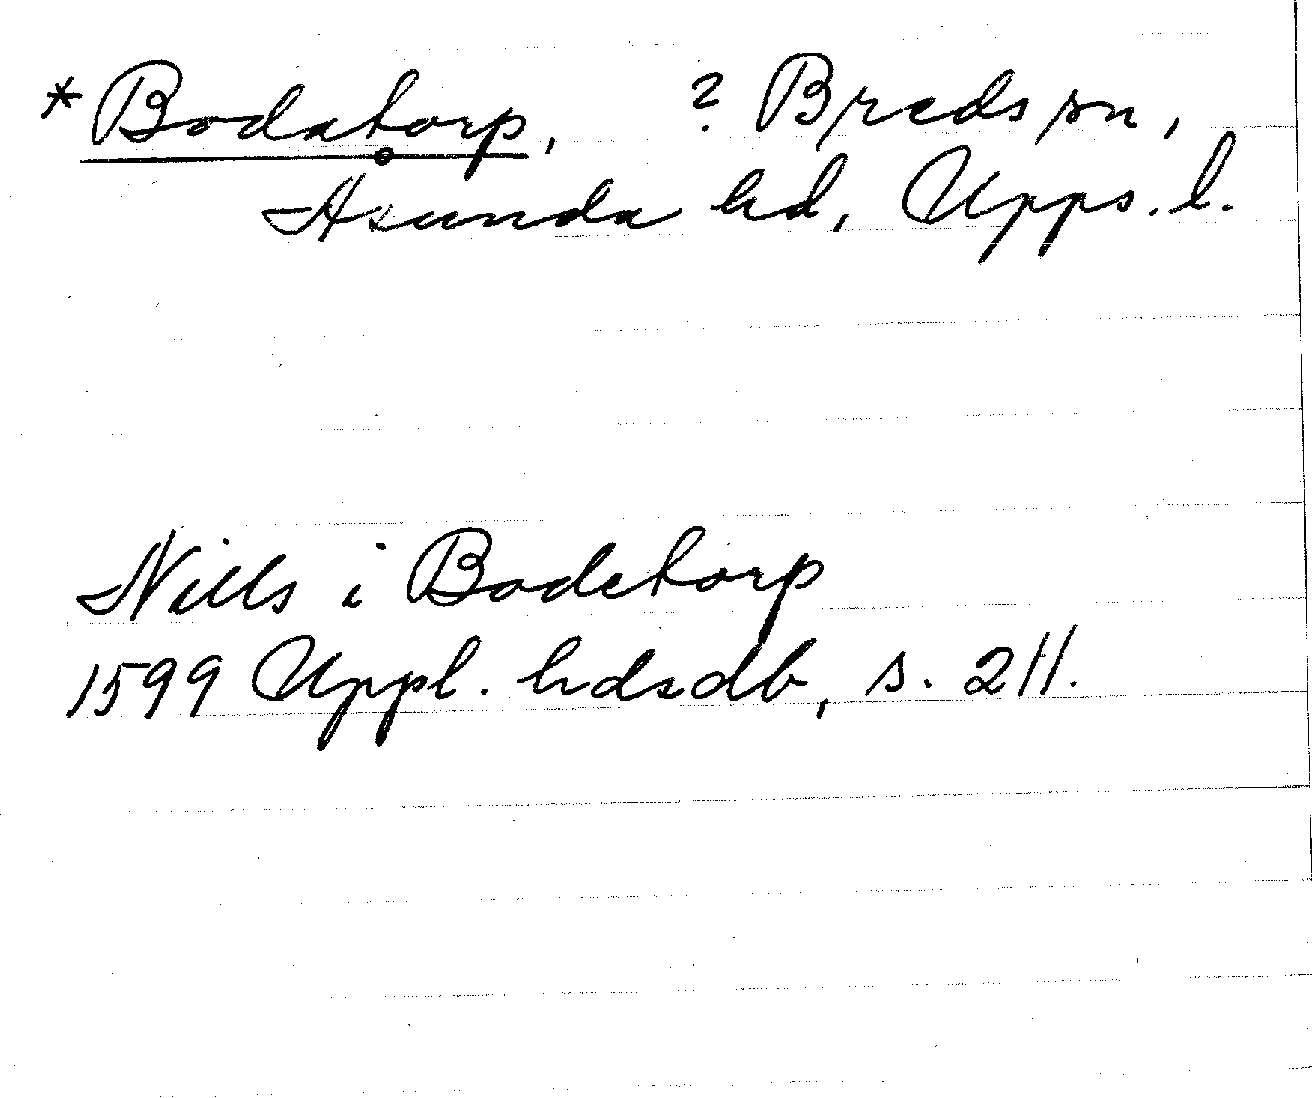 *Bodatorp, ? Breds sn,
Åsunda hd, Upps. l.
Nills i Bodetorp
1599 Uppl. hdsdb, s. 211.